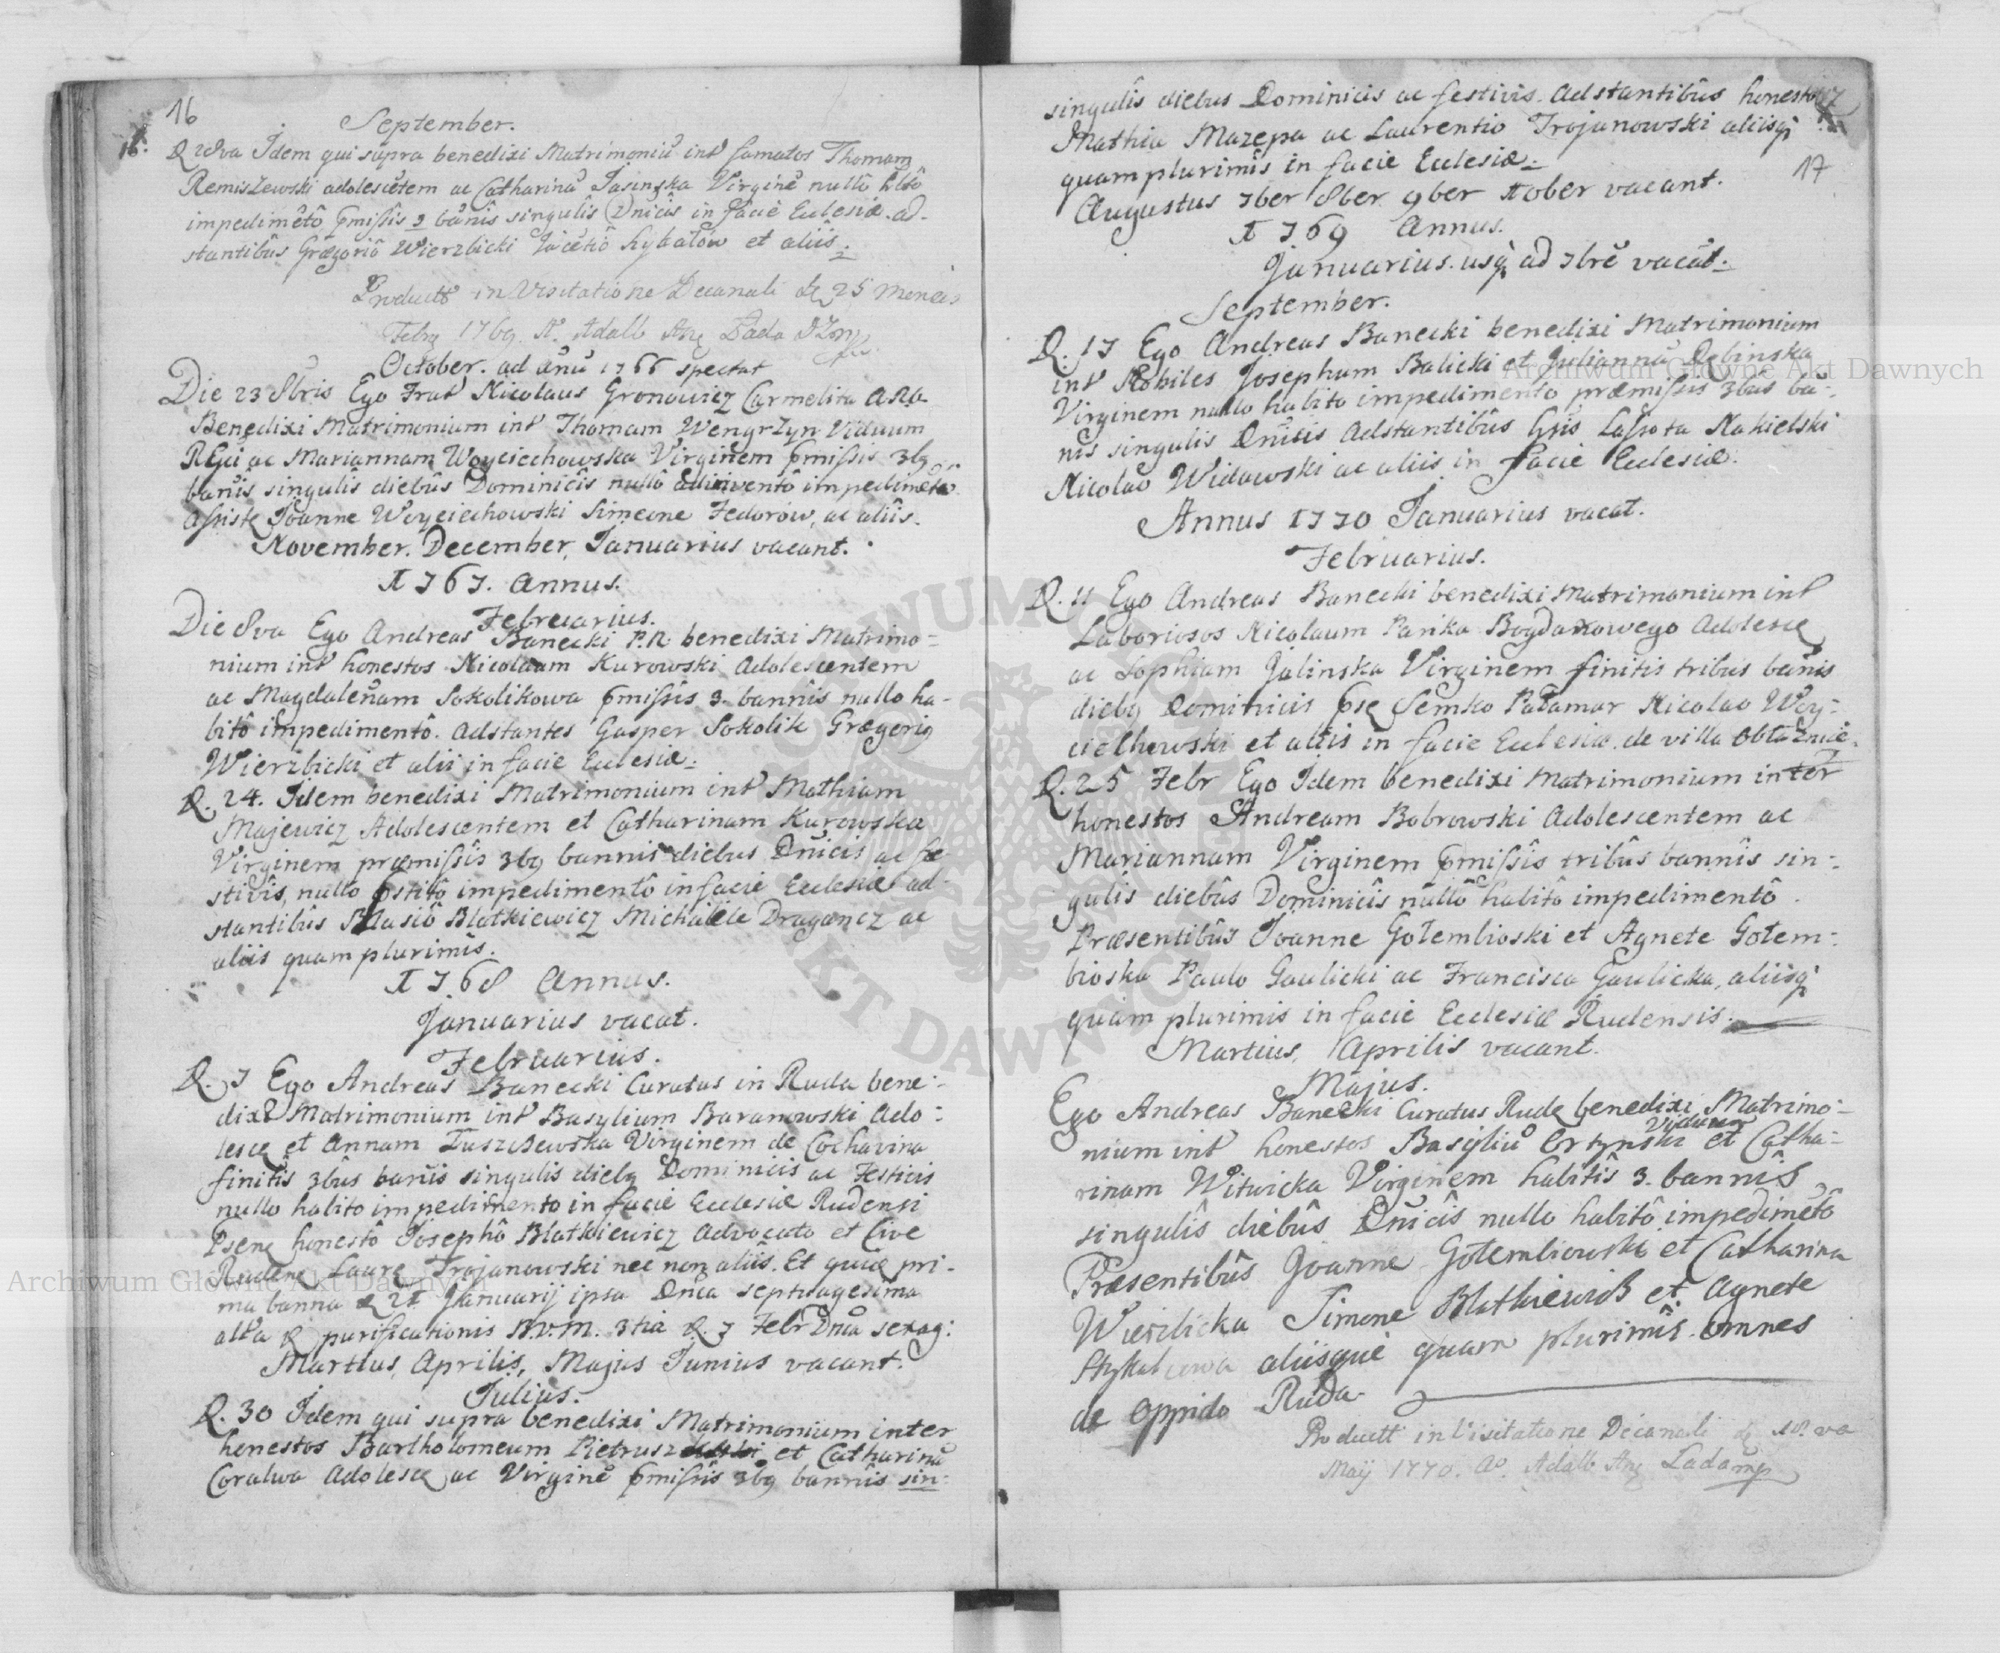 16
September.
Idem qui supra benedixi Matrimoniū int famatos Thomam
Remiszewski adolescētem ac Catharinā Jasinska Virginē nullô hbtô
impedimētô pmissîs 3 bānîs singulîs Dnicis in facie Ecclesiæ. ad-
stantibûs Grægoriô Wierzbicki et aliîs.
in Visitatione Decanali 25 Mensis
1769.
October. ad anū 1766 spectat
Die 23 8bris Ego Frat Nicolaus Gronowicz Carmelita
Benedixi Matrimonium int Thomam Wengrzyn Viduum
ac Mariannam Woyciechowska Virginem pmissis 3bq
banîs singulîs diebûs Dominicîs nullô impedimētô
Joanne Woyciechowski Simeone Fedorow, ac aliîs.
November. December, Januarius vacant.
1767. Annus.
Februarius.
Die 8va Ego Andreas Banecki P.R. benedixi Matrimo=
nium int honestos Nicolaum Kurowski Adolescentem
ac Magdalenam Sokolikowa pmissîs 3. bannîs nullo ha-
bitô impedimentô. Adstantes Gasper Sokolik Grægeriq
Wierzbicki et alii in facie Ecclesiæ.
D. 24. Idem benedixi Matrimonium int Mathiam
Majewicz Adolescentem et Catharinam Kurowska
Virginem præmissîs 3bq bannis diebus Dnicis ac fe
stivîs, nullô impedimentô in facie Ecclesiæ ad-
stantibûs Blasiô Blatkiewicz Michaele ac
aliis quam plurimîs.
1768 Annus.
Januarius vacat.
Februarius.
D. 7 Ego Andreas Banecki Curatus in Ruda bene=
dixi Matrimonium int Basylium Baranowski Ado=
lescę et Annam Virginem de Cochavina
finitîs 3bus banîs singulis diebq Dominicis ac Festivis
nullo habito impedimento in facie Ecclesiæ Rudensi
Psenę honestô Josephô Blatkiewicz Advocato et Cive
Rudenę Laurę Trojanowski nec non aliîs. Et quia pri-
ma banna Januarij ipsa Dnica septuagesima
altâ purificationis B.V.M. 3tia D. 7 Febr Dnica sexag:
Martius, Aprilis, Majus Junius vacant.
Julius.
D. 30 Idem qui supra benedixi Matrimonium inter
honestos Bartholomeum et Catharinā
Coralwa Adolescę ac Virginē pmissîs 3bq bannîs sin=
singulîs diebus Dominicis ac festivis. Adstantibûs honesto
Mathia Mazepa ac Laurentio Trojanowski aliisq
quam plurimîs in facie Ecclesiæ.
17
Augustus 7ber 8ber 9ber Xober vacant.
1769 Annus.
Januarius. usq ad 7brē vacāt.
September.
D. 17 Ego Andreas Banecki benedixi Matrimonium
int Nobiles Josephum Balicki et Juliannā Dębinska
Virginem nullo habito impedimento præmissis 3bus bā=
nis singulis Dnicis Adstantibûs Lassota Nakielski
Nicolao Widawski ac aliis in facie Ecclesiæ.
Annus 1770 Januarius vacat.
Februarius.
D. 11 Ego Andreas Banecki benedixi Matrimonium int
Laboriosos Nicolaum Parika Bogdanowego Adolescę
ac Sophiam Jalinska Virginem finitis tribus banîs
diebq Dominicis psę Semko Palamar Nicolao Woy=
ciechowski et aliis in facie Ecclesiæ. de villa
D. 25 Febr Ego Idem benedixi Matrimonium inter
honestos Andream Bobrowski Adolescentem ac
Mariannam Virginem pmissîs tribûs bannîs sin=
gulis diebûs Dominicîs nullô habitô impedimentô.
Præsentibûs Joanne Gołembioski et Agnete Gołem=
bioska Paulo Gaulicki ac Francisca Gaulicka, aliisq
quam plurimis in facie Ecclesiæ Rudensis.
Martius, Aprilis vacant.
Majus.
Ego Andreas Banecki Curatus Rudę benedixi Matrimo=
Viduum
nium int honestos Basyliū Ortynski et Catha=
rinam Witwicka Virginem habitîs 3. bannîs
singulîs diebûs Dnicîs nullo habitô impedimētô
Præsentibûs Joanne Gołembiowski et Catharina
Wierzbicka Simone et Agnete
aliisque quam plurimîs. Omnes
de Oppido Ruda.
in Visitatione Decanali
Maij 1770.
Archiwum Główne Akt Dawnych
Archiwum Główne Akt Dawnych
ARCHIWUM GŁÓWNE AKT DAWNYCH